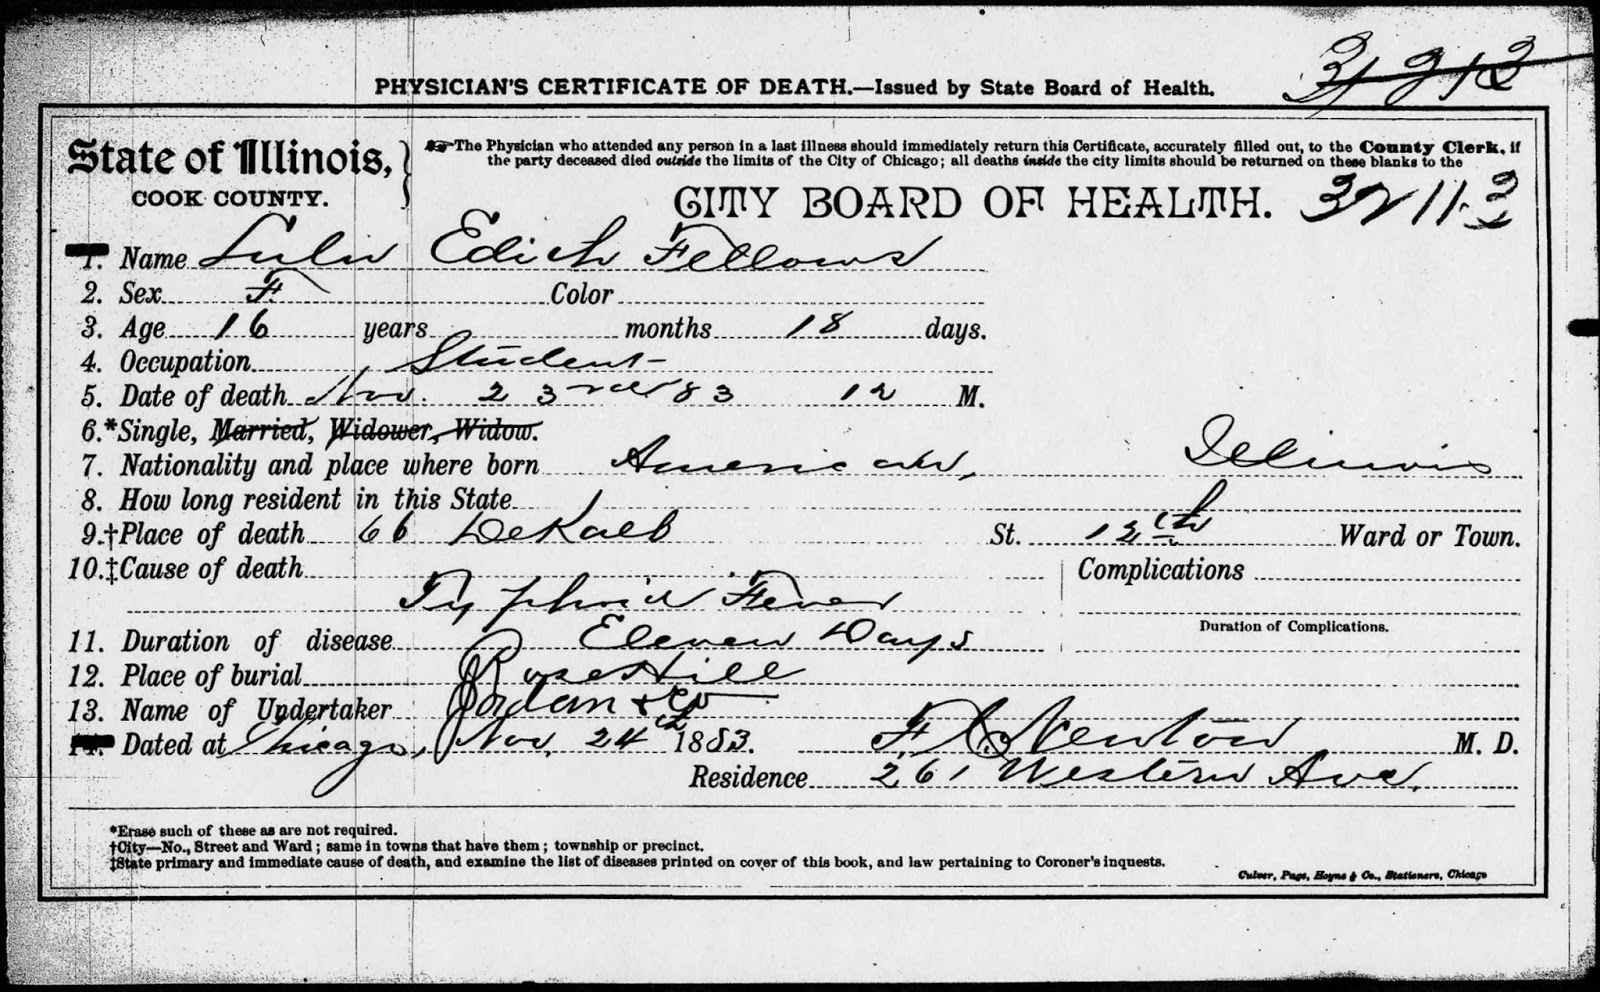 PHYSICIAN'S CERTIFICATE OF DEATH.—Issued by State Board of Health.
State of Illinois,
COOK COUNTY.
The Physician who attended any person in a last illness should immediately return this Certificate, accurately filled out, to the County Clerk, if
the party deceased died outside the limits of the City of Chicago; all deaths inside the city limits should be returned on these blanks to the
CITY BOARD OF HEALTH.
1. Name Lulu Edith Fellows
2. Sex F. Color
3. Age 16 years months 18 days.
4. Occupation Student
5. Date of death Nov. 23rd 83 12 M.
6.*Single, Married, Widower, Widow.
7. Nationality and place where born American, Illinois
8. How long resident in this State
9.†Place of death 66 DeKalb St. 12th Ward or Town.
10.‡Cause of death Complications
Typhoid Fever
Duration of Complications.
11. Duration of disease Eleven Days
12. Place of burial Rose Hill
13. Name of Undertaker Jordan & Co
14. Dated at Chicago, Nov. 24th 1883. F. C. Newton M. D.
Residence 261 Western Ave.
*Erase such of these as are not required.
†City—No., Street and Ward; same in towns that have them; township or precinct.
‡State primary and immediate cause of death, and examine the list of diseases printed on cover of this book, and law pertaining to Coroner's inquests.
Culver, Page, Hoyne & Co., Stationers, Chicago